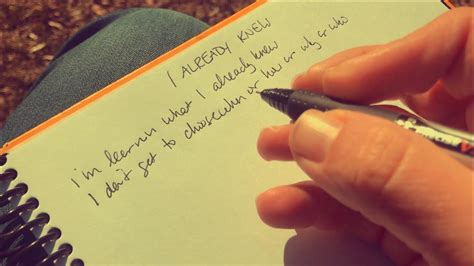 I ALREADY KNEW
I'm learnin what I already knew
I don't get to choose when or how or why or who